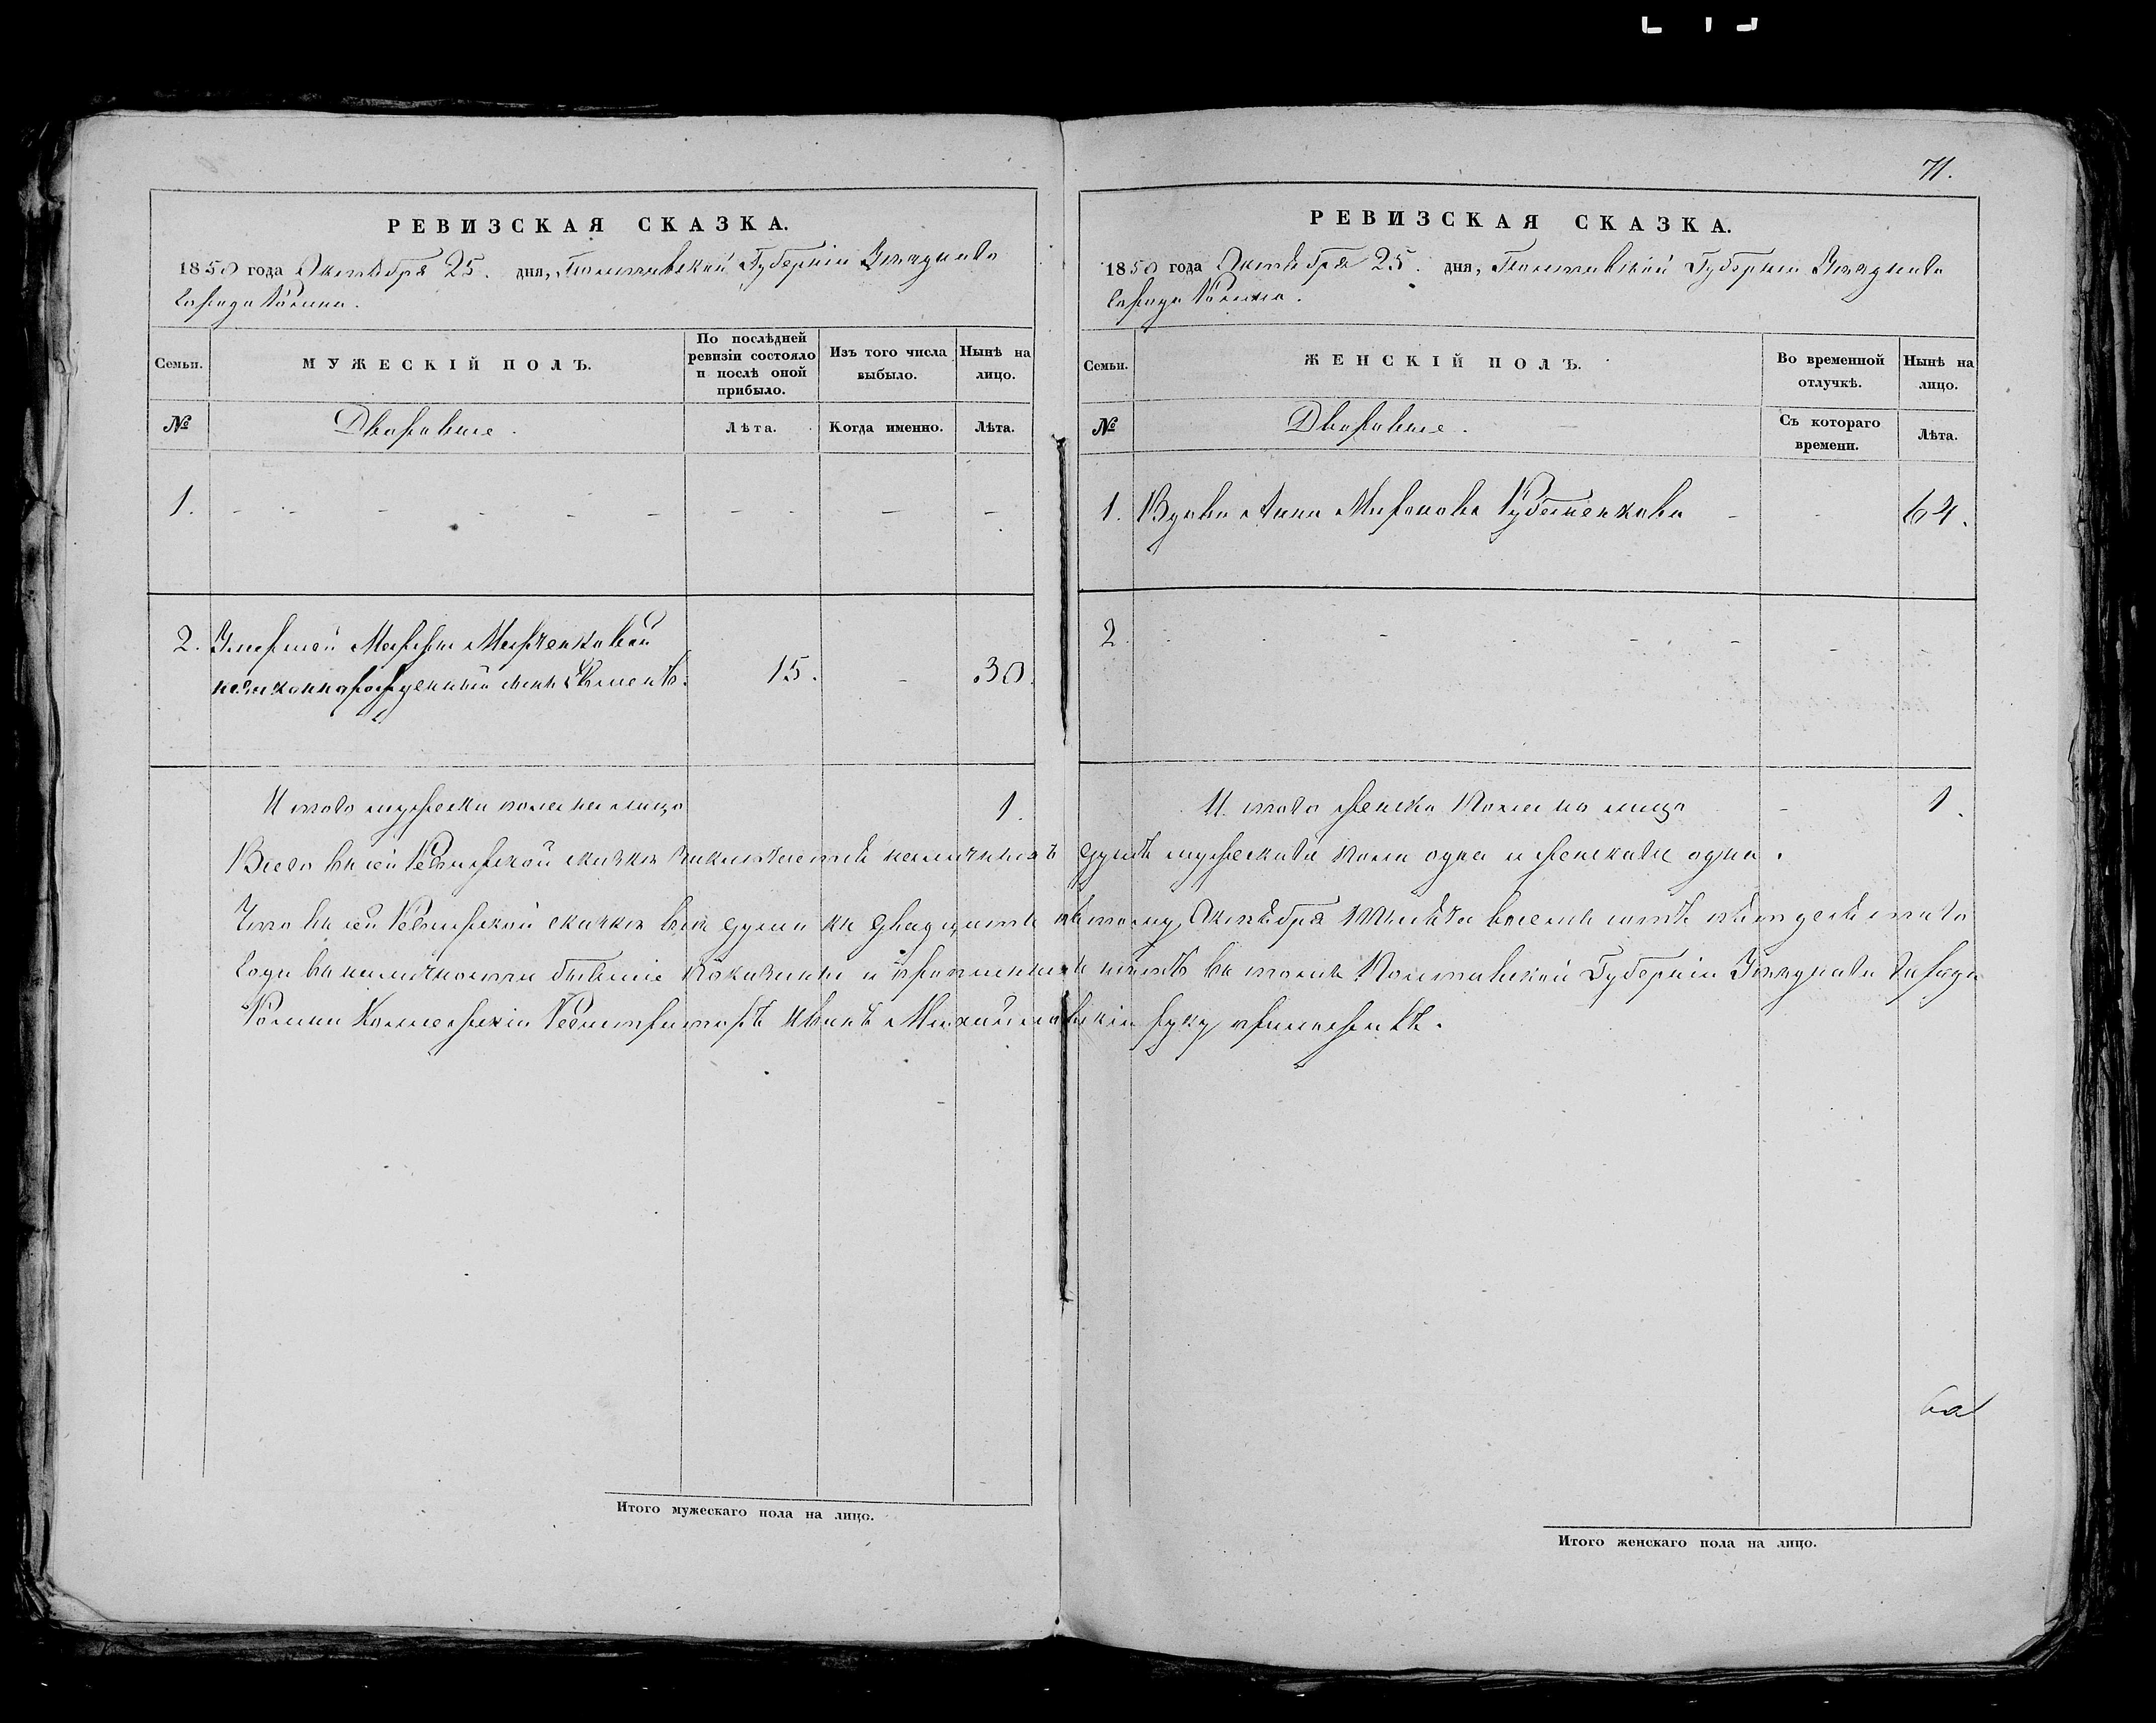 71.
РЕВИЗСКАЯ СКАЗКА.
1850 года Октября 25. дня, Полтавской Губерніи Уѣзднаго
города Ромна.
Семьи.
МУЖЕСКІЙ ПОЛЪ.
По послѣдней ревизіи состояло и послѣ оной прибыло.
Изъ того числа выбыло.
Нынѣ на лицо.
№
Дворовые.
Лѣта.
Когда именно.
Лѣта.
1. - - - - - - - - - -
2. Умершей Марфы Марченковой
незаконнорожденный сынъ Климентъ. 15. - 30.
И того мужеска пола на лицо 1.
РЕВИЗСКАЯ СКАЗКА.
1850 года Октября 25. дня, Полтавской Губерніи Уѣзднаго
города Ромна.
Семьи.
ЖЕНСКІЙ ПОЛЪ.
Во временной отлучкѣ.
Нынѣ на лицо.
№
Дворовые.
Съ котораго времени.
Лѣта.
1. Вдова Анна Миронова - - 64.
2. - - - -
И того женска пола на лицо - 1.
Всего въ сей Ревизской сказкѣ наличныхъ душъ мужескаго пола одна и женскаго одна.
Что въ сей Ревизской сказкѣ всѣ души къ двадцать пятому Октября тысяча восемь сотъ пятьдесятаго
года въ наличности бывшіе показаны и пропущенныхъ нѣтъ въ томъ Полтавской Губерніи Уѣзднаго города
Ромна Коллежскій Регистраторъ Иванъ Михайловскій руку приложилъ.
Итого мужескаго пола на лицо.
Итого женскаго пола на лицо.